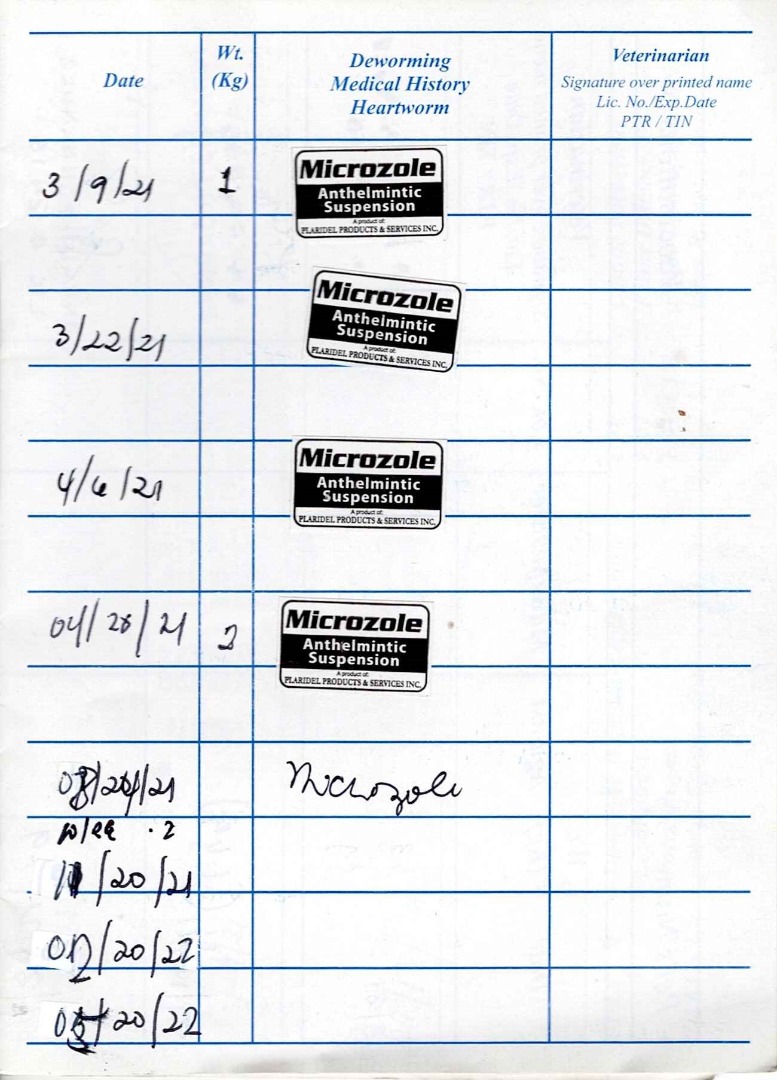 Date
Wt.
(Kg)
Deworming
Medical History
Heartworm
Veterinarian
Signature over printed name
Lic. No./Exp.Date
PTR / TIN
3/9/21 1
Microzole
Anthelmintic
Suspension
A product of:
PLARIDEL PRODUCTS & SERVICES INC.
3/22/21
Microzole
Anthelmintic
Suspension
A product of:
PLARIDEL PRODUCTS & SERVICES INC.
4/6/21
Microzole
Anthelmintic
Suspension
A product of:
PLARIDEL PRODUCTS & SERVICES INC.
04/28/21
Microzole
Anthelmintic
Suspension
A product of:
PLARIDEL PRODUCTS & SERVICES INC.
Microzole
/20/21
/20/22
/20/22